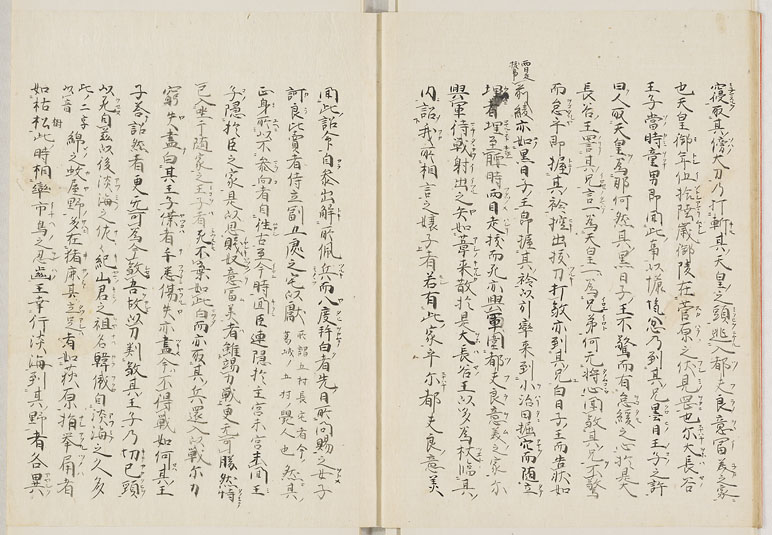 寝取其傍大刀乃打斬其天皇之頭逃入都夫良意冨美之家
也天皇御年伍拾陸歳御陵在菅原之伏見岡也尓大長谷
王子當時童男即聞此事以慷愾忿乃到其兄黒日子王之許
曰人取天皇為那何然其黒日子王不驚而有怠緩之心於是大
長谷王詈其兄言一為天皇一為兄弟何无恃心聞殺其兄不驚
而怠乎即握其衿控出抜刀打敎亦到其兄白日子王而告状如
前緩亦如黒日子王即握其衿以引率来到小治田掘穴而随立
埋者埋至腰時両目走抜而死亦興軍圍都夫良意美之家尓
興軍待戦射出之矢如葦来散於是大長谷王以矛為杖臨其
内詔我所相言之嬢子者若有此家乎尓都夫良意美
聞此詔命自参出解所佩兵而八度拝白者先日所問賜之女子
訶良比賣者侍立副五處之屯宅以獻
然其
正身所以不参向者自往古至今時聞臣連隠於王宮未聞王
子隠於臣之家是以思賤奴意冨美者雖竭力戦更无可勝然恃
己入坐于随家之王子者死不棄如此白而亦取其兵還入以戦尓力
窮矢盡白其王子僕者手悉傷矢亦盡今不得戦如何其王
子荅詔然者更无可為今敎吾故以刀刺敎其王子乃切己頭
以死自茲以後淡海之佐紀山君之祖名韓帒白淡海之久多
此二字以音
綿之蚊屋野多在猪鹿其立足者如荻原指挙角者
如枯松此時相率市邊之忍歯王幸行淡海到其野者各異